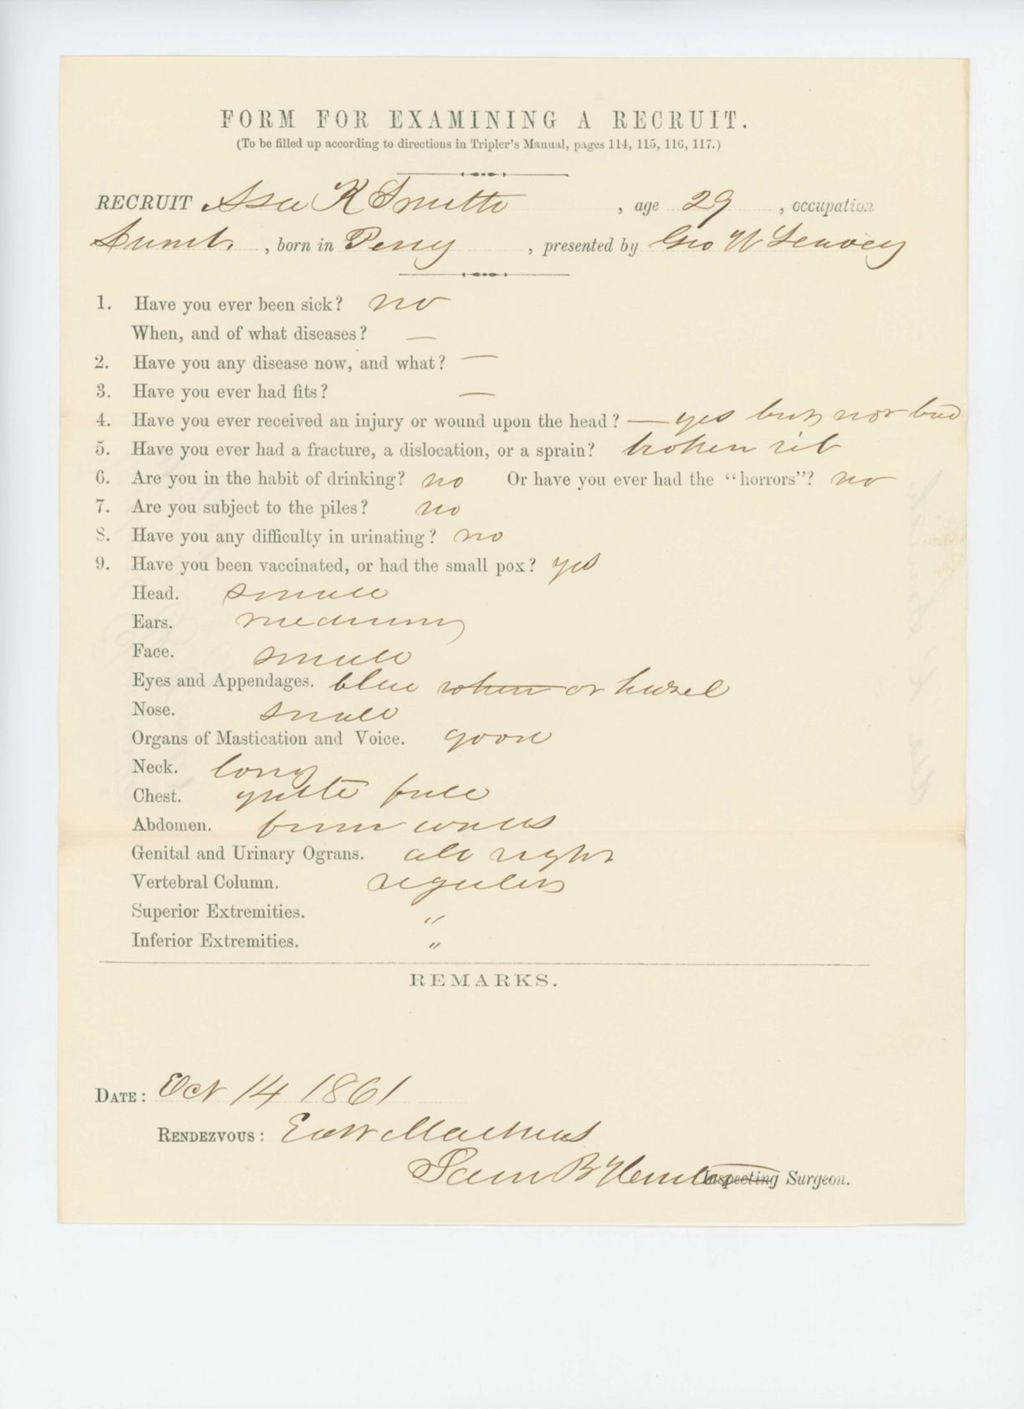 FORM FOR EXAMINING A RECRUIT.
(To be filled up according to directions in Tripler's Manual, pages 114, 115, 116, 117.)
RECRUIT Asa K Smith , age 29 , occupation
Lumb. , born in Perry , presented by Geo W
1. Have you ever been sick? no
When, and of what diseases? —
2. Have you any disease now, and what? —
3. Have you ever had fits? —
4. Have you ever received an injury or wound upon the head? — yes but not bad
5. Have you ever had a fracture, a dislocation, or a sprain? broken rib
6. Are you in the habit of drinking? no Or have you ever had the "horrors"? no
7. Are you subject to the piles? no
8. Have you any difficulty in urinating? no
9. Have you been vaccinated, or had the small pox? yes
Head. small
Ears. medium
Face. small
Eyes and Appendages. blue or hazel
Nose. small
Organs of Mastication and Voice. good
Neck. long
Chest. quite full
Abdomen. firm walls
Genital and Urinary Ograns. all right
Vertebral Column. regular
Superior Extremities. "
Inferior Extremities. "
REMARKS.
DATE: Oct 14 1861
RENDEZVOUS: East Machias
Sam B Hunter Inspecting Surgeon.